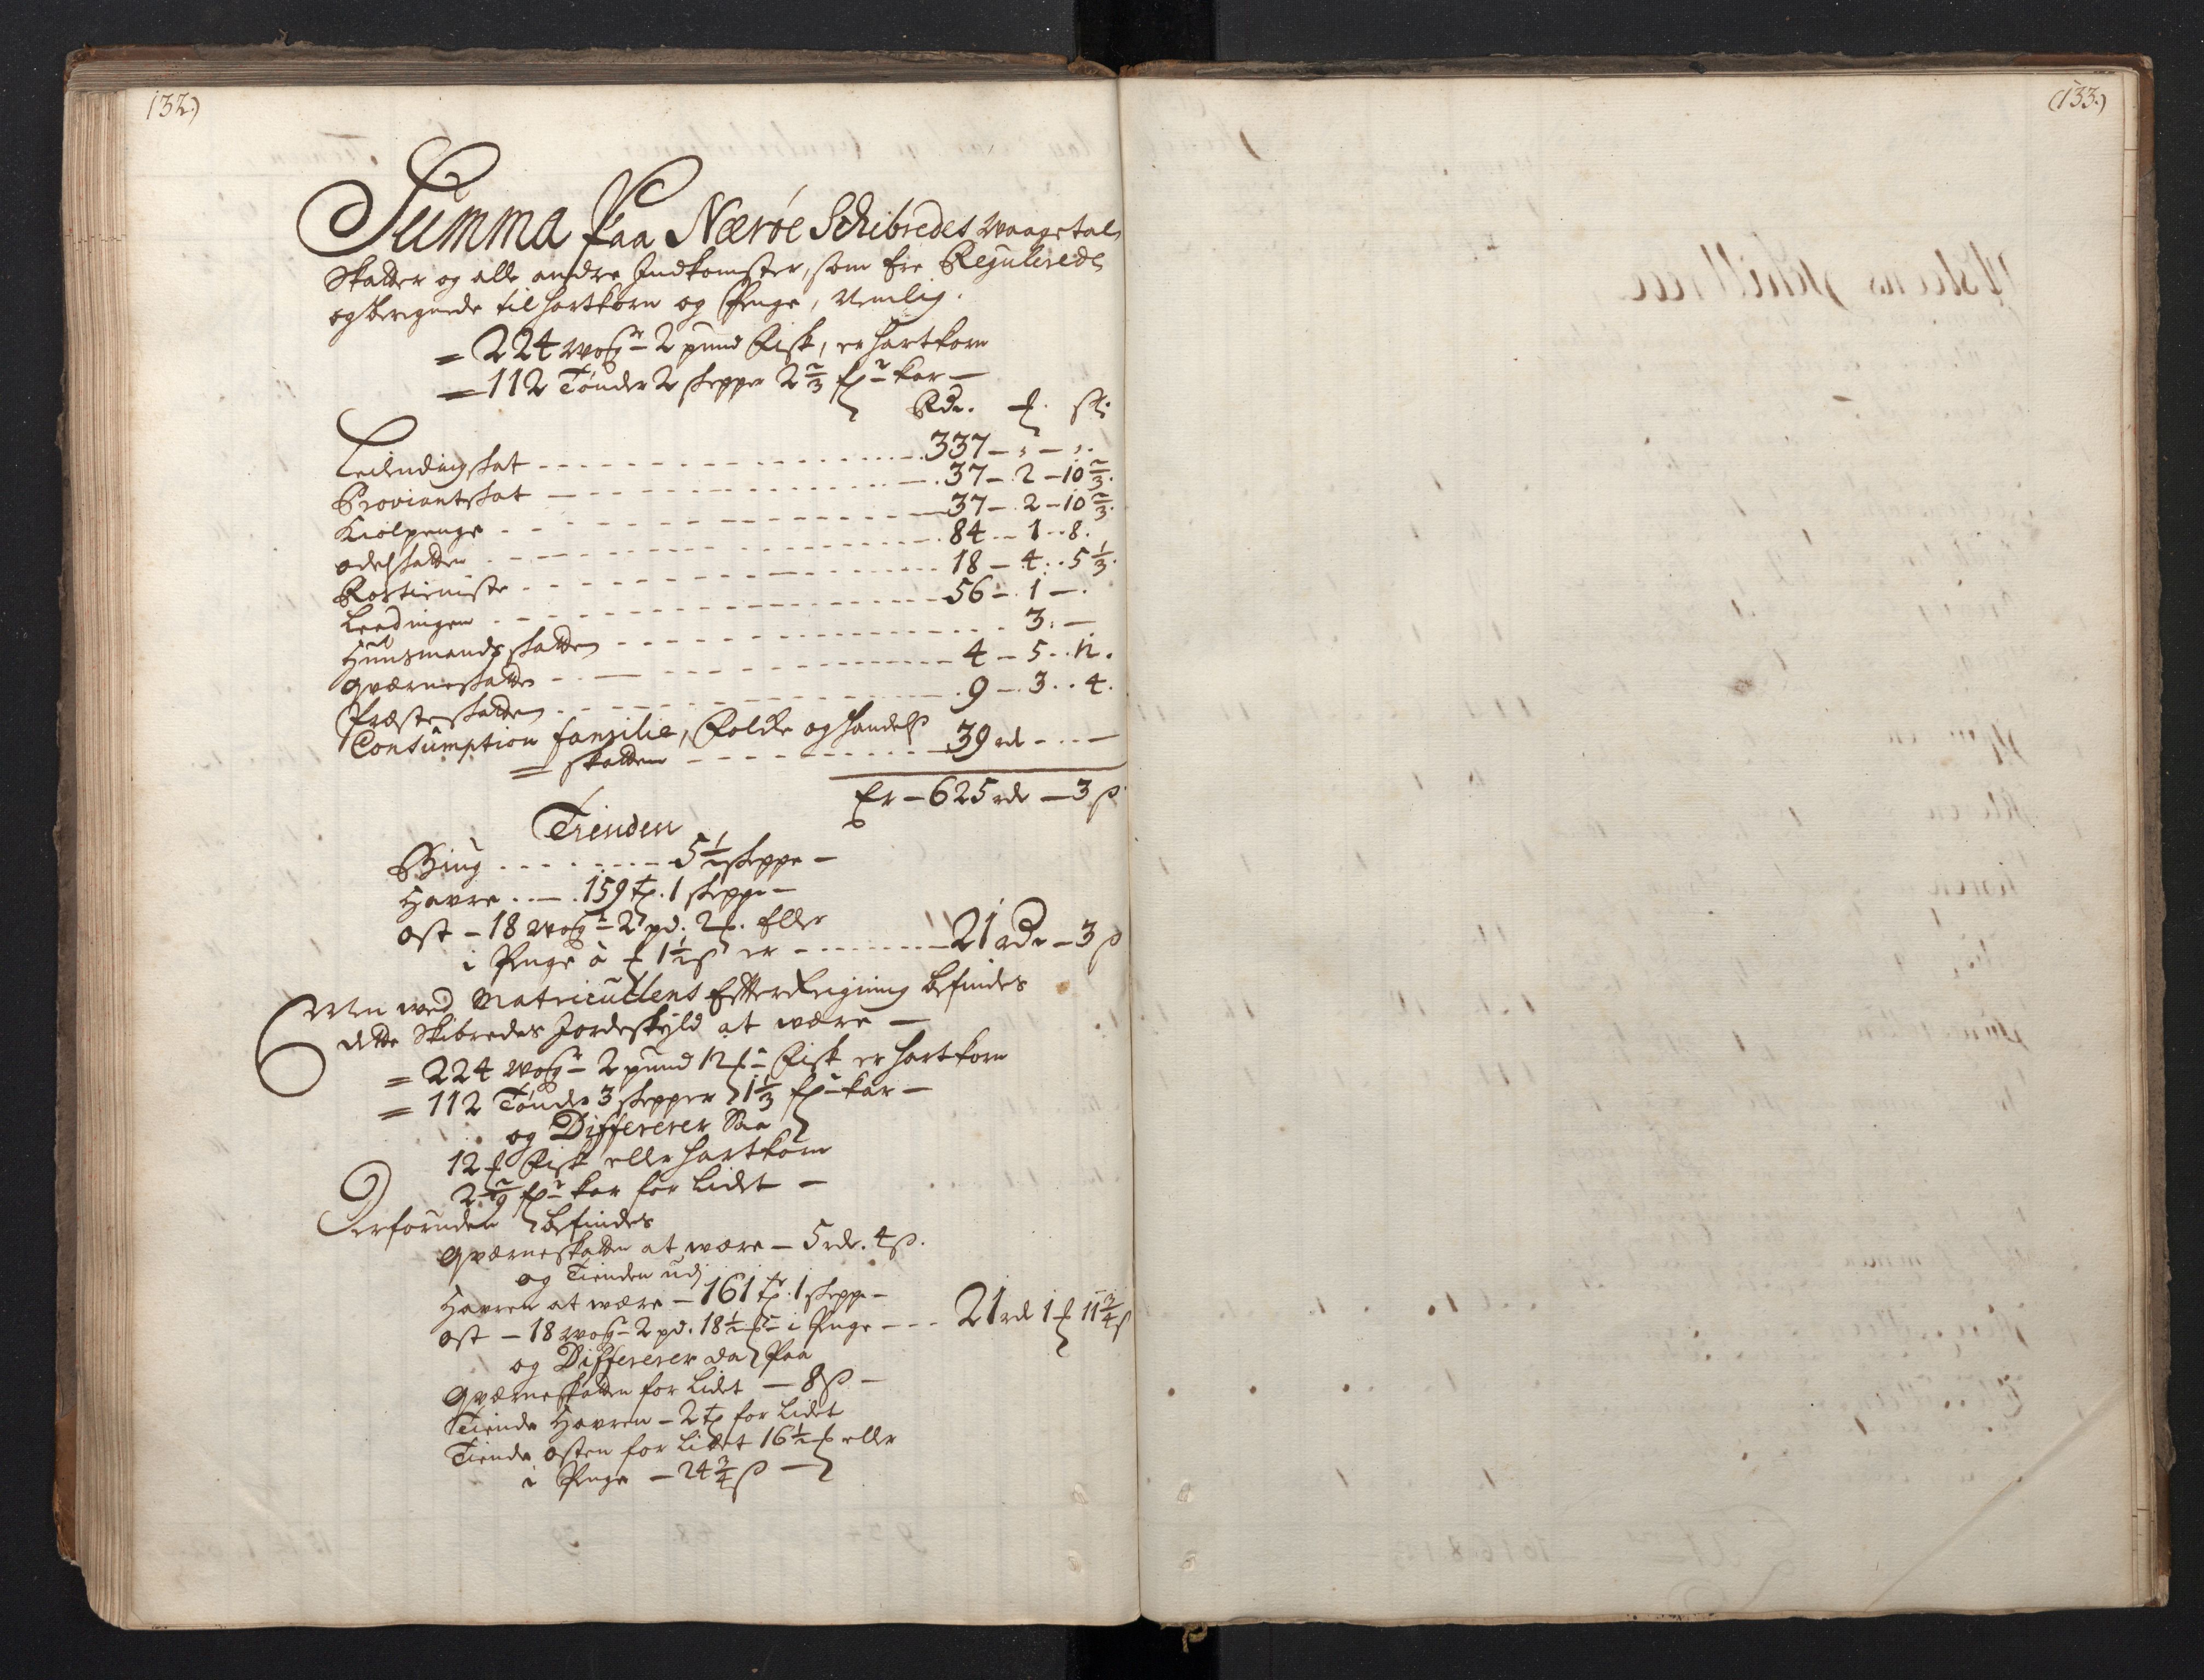 132.)
Summa Paa Nærøe Schibredes Waagetal,
Skatter og alle andre Indkomster, som Ere Regulerede
og beregnede til Hartkorn og Penge, Nemlig.
= 224 Wog 2 pund Fisk, er Hartkorn
= 112 Tønder 2 Skepper 2 2/3 fr kar —
Rdr. ƒ. sk:
Leilendingskat - - - 337 — : — :
Proviantskat - - - 37 — 2 — 10 2/3.
Kiølpenge - - - 37 — 2 — 10 2/3.
odelskatten - - - 84 - 1 - 8.
Rostieniste - - - 18 — 4 . . 5 1/3.
Leedingen - - - 56 — 1 —.
Huusmandsskatten - - - 3: —
qværneskatten - - - 4 — 5 . . 12.
Præsteskatten - - - 9 — 3 . . 4.
Consumption familie, Folcke og Handels
= skatten - - - 39 rd - - —
Er — 625 rdr — 3 ß
Tienden
Biug - - - 5 1/2 Skeppe —
Havre - — . 159 t. 1 Skeppe —
ost — 18 Wog 2 pd. 2 . Eller
i Penge à 1 1/2 ß er - - - 21 rdr — 3 ß
Men wed Matricullens Efterregning befindes
dette Skibredes Jordeskyld at være —
= 224 Wog — 2 pund 12 Fisk er Hartkorn
= 112 Tønder 3 Skepper 1 1/3 fr kar —
og Differerer Saa
12 Fisk eller Hartkorn
2 2/9 fr kar for Lidet —
Derforuden befindes
qværneskatten at være — 5 rdr. 4 ß.
og Tienden udj
Havren at være — 161 t. 1 Skeppe —
ost — 18 Wog — 2 pd. 18 1/2 i Penge - - - 21 rd 1 11 3/4 ß
og Differerer da Paa
qværneskatten for Lidet — 8 ß —
Tiende Havren — 2 t for Lidet
Tiende osten for Lidet 16 1/2 eller
i Penge — 24 3/4 ß —
(133.)